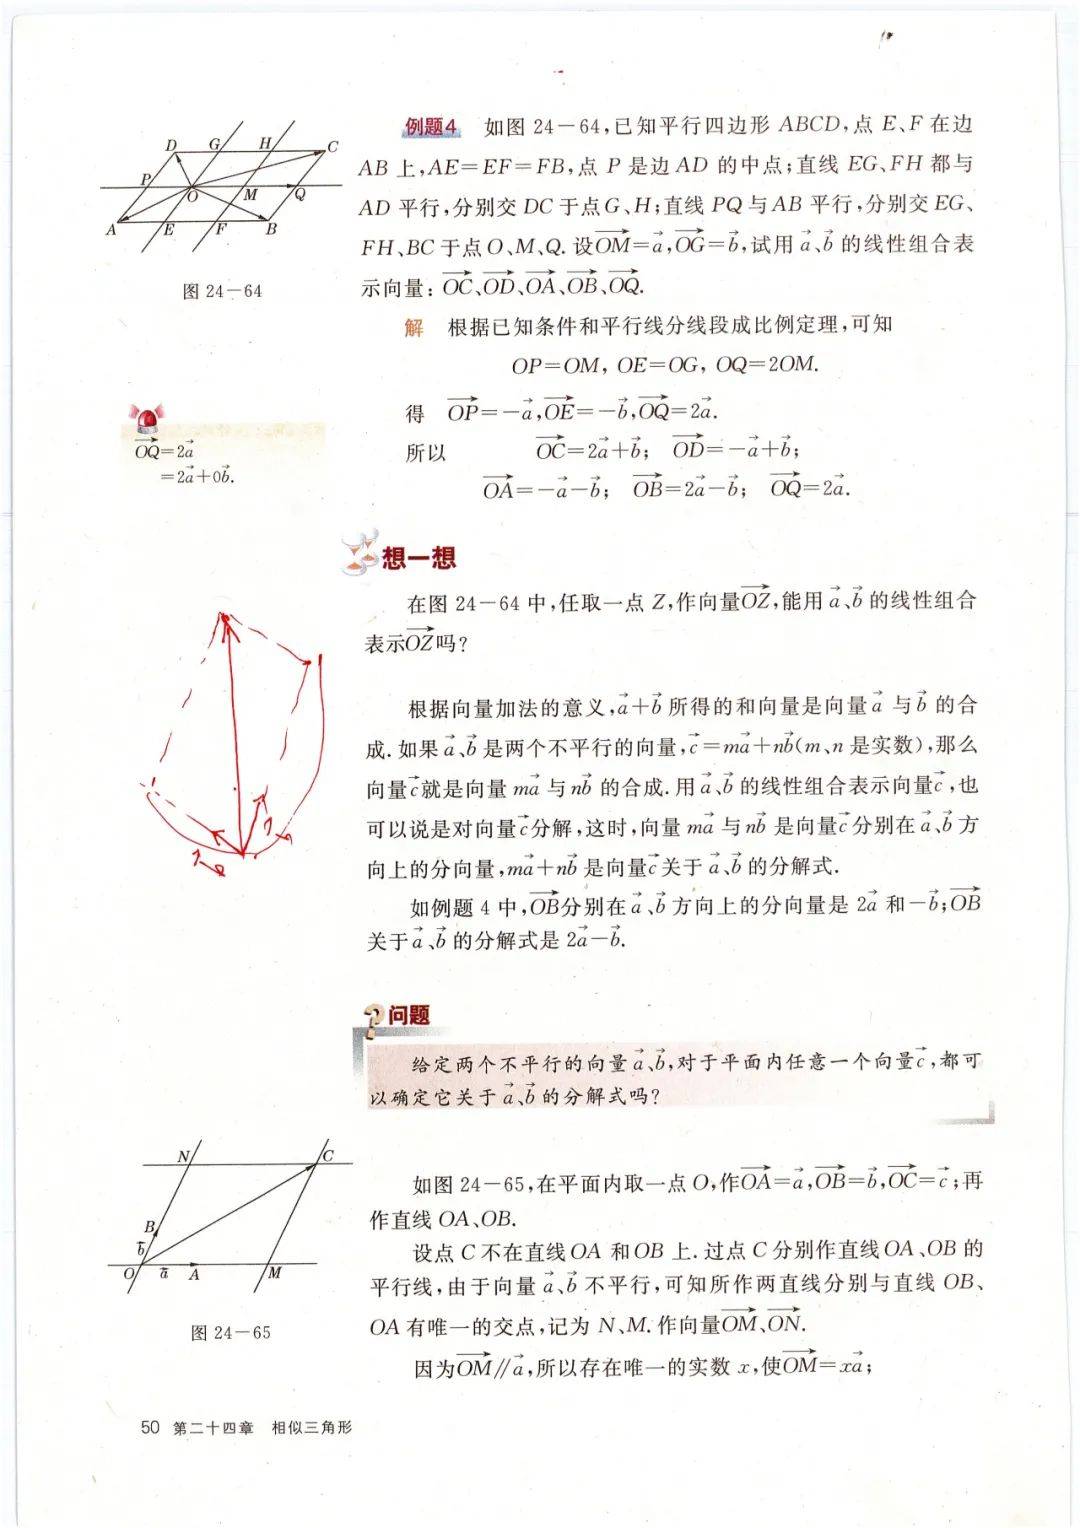 例题4 如图 24-64,已知平行四边形 ABCD,点 E、F 在边
AB 上,AE=EF=FB,点 P 是边 AD 的中点;直线 EG、FH 都与
AD 平行,分别交 DC 于点G、H;直线 PQ 与AB 平行,分别交 EG、
FH、BC 于点 O、M、Q. 设$\overrightarrow{OM}=\vec{a}$,$\overrightarrow{OG}=\vec{b}$,试用 $\vec{a}$、$\vec{b}$ 的线性组合表
示向量: $\overrightarrow{OC}$、$\overrightarrow{OD}$、$\overrightarrow{OA}$、$\overrightarrow{OB}$、$\overrightarrow{OQ}$.
D G H C
P O M Q
A E F B
图 24-64
解 根据已知条件和平行线分线段成比例定理,可知
OP=OM, OE=OG, OQ=2OM.
得 $\overrightarrow{OP}=-\vec{a}$,$\overrightarrow{OE}=-\vec{b}$,$\overrightarrow{OQ}=2\vec{a}$.
所以 $\overrightarrow{OC}=2\vec{a}+\vec{b}$; $\overrightarrow{OD}=-\vec{a}+\vec{b}$;
$\overrightarrow{OA}=-\vec{a}-\vec{b}$; $\overrightarrow{OB}=2\vec{a}-\vec{b}$; $\overrightarrow{OQ}=2\vec{a}$.
$\overrightarrow{OQ}=2\vec{a}$
$=2\vec{a}+0\vec{b}$.
想一想
在图 24-64 中,任取一点 Z,作向量$\overrightarrow{OZ}$,能用 $\vec{a}$、$\vec{b}$ 的线性组合
表示$\overrightarrow{OZ}$吗?
根据向量加法的意义,$\vec{a}+\vec{b}$ 所得的和向量是向量 $\vec{a}$ 与 $\vec{b}$ 的合
成. 如果 $\vec{a}$、$\vec{b}$ 是两个不平行的向量,$\vec{c}=m\vec{a}+n\vec{b}$(m、n 是实数),那么
向量$\vec{c}$就是向量 $m\vec{a}$ 与 $n\vec{b}$ 的合成. 用 $\vec{a}$、$\vec{b}$ 的线性组合表示向量$\vec{c}$,也
可以说是对向量$\vec{c}$分解,这时,向量 $m\vec{a}$ 与 $n\vec{b}$ 是向量$\vec{c}$分别在 $\vec{a}$、$\vec{b}$ 方
向上的分向量,$m\vec{a}+n\vec{b}$ 是向量$\vec{c}$关于 $\vec{a}$、$\vec{b}$ 的分解式.
如例题 4 中,$\overrightarrow{OB}$分别在 $\vec{a}$、$\vec{b}$ 方向上的分向量是 $2\vec{a}$ 和$-\vec{b}$;$\overrightarrow{OB}$
关于 $\vec{a}$、$\vec{b}$ 的分解式是 $2\vec{a}-\vec{b}$.
问题
给定两个不平行的向量 $\vec{a}$、$\vec{b}$,对于平面内任意一个向量$\vec{c}$,都可
以确定它关于 $\vec{a}$、$\vec{b}$ 的分解式吗?
N C
B
$\vec{b}$
O $\vec{a}$ A M
图 24-65
如图 24-65,在平面内取一点 O,作$\overrightarrow{OA}=\vec{a}$,$\overrightarrow{OB}=\vec{b}$,$\overrightarrow{OC}=\vec{c}$;再
作直线 OA、OB.
设点 C 不在直线 OA 和OB 上. 过点 C 分别作直线 OA、OB 的
平行线,由于向量 $\vec{a}$、$\vec{b}$ 不平行,可知所作两直线分别与直线 OB、
OA 有唯一的交点,记为 N、M. 作向量$\overrightarrow{OM}$、$\overrightarrow{ON}$.
因为$\overrightarrow{OM}$∥$\vec{a}$,所以存在唯一的实数 x,使$\overrightarrow{OM}=x\vec{a}$;
50 第二十四章 相似三角形